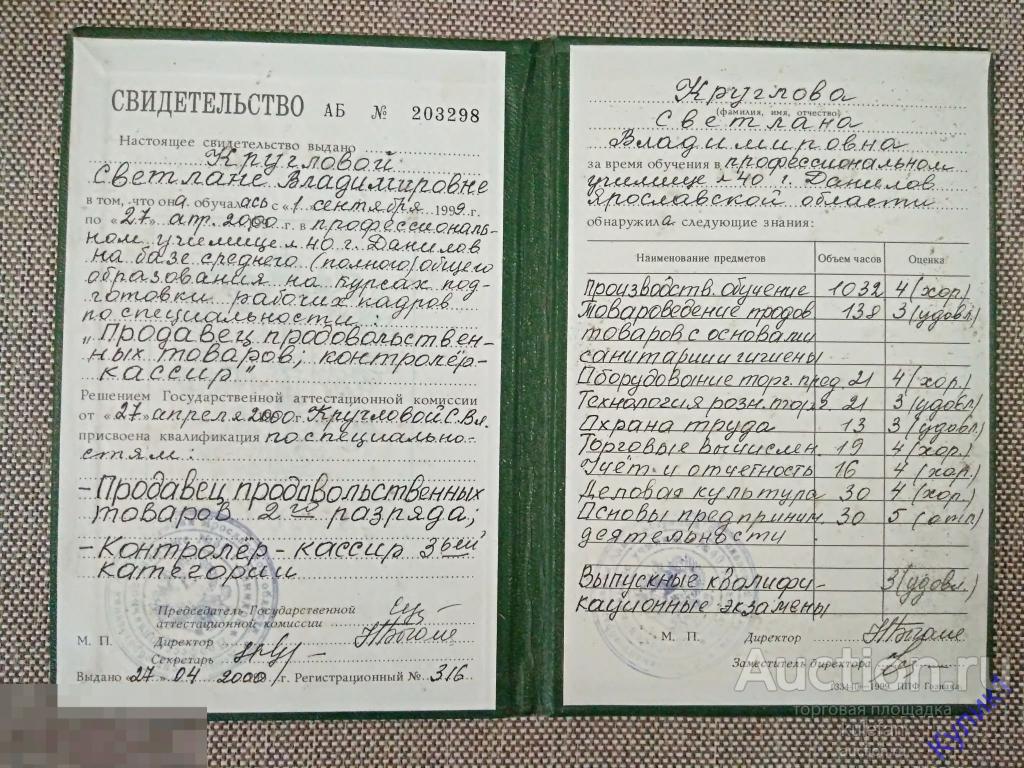 СВИДЕТЕЛЬСТВО АБ № 203298
Настоящее свидетельство выдано
Кругловой
Светлане Владимировне
в том, что она обучалась с «1 сентября 1999 г.
по «27» апр. 2000 г. в профессиональ-
ном училище №40 г. Данилов
на базе среднего (полного) общего
образования на курсах под-
готовки рабочих кадров
по специальности:
„Продавец продовольствен-
ных товаров; контролёр-
кассир"
Решением Государственной аттестационной комиссии
от «27» апреля 2000 г. Кругловой С. Вл.
присвоена квалификация по специально-
стям:
- Продавец продовольственных
товаров 2го разряда;
- Контролёр - кассир 3ьей
категории
Председатель Государственной
аттестационной комиссии
М. П. Директор
Секретарь
Выдано «27» 04 2000 г. Регистрационный № 316
Круглова
(фамилия, имя, отчество)
Светлана
Владимировна
за время обучения в профессиональном
училище №40 г. Данилов
Ярославской области
обнаружила следующие знания:
Наименование предметов Объем часов Оценка
Производств. обучение 1032 4 (хор.)
Товароведение продов 138 3 (удовл.)
товаров с основами
санитарии и гигиены
Оборудование торг. пред. 21 4 (хор.)
Технология розн. торг. 21 3 (удовл.)
Охрана труда 13 3 (удовл.)
Торговые вычислен. 19 4 (хор.)
Учёт и отчетность 16 4 (хор.)
Деловая культура 30 4 (хор.)
Основы предприним 30 5 (отл)
деятельности
Выпускные квалифи- 3 (удовл.)
кационные экзамены
М. П. Директор
Заместитель директора
1999. ППФ Гознака.
Auction.ru
торговая площадка
kuletan
auction.ru
Купик1